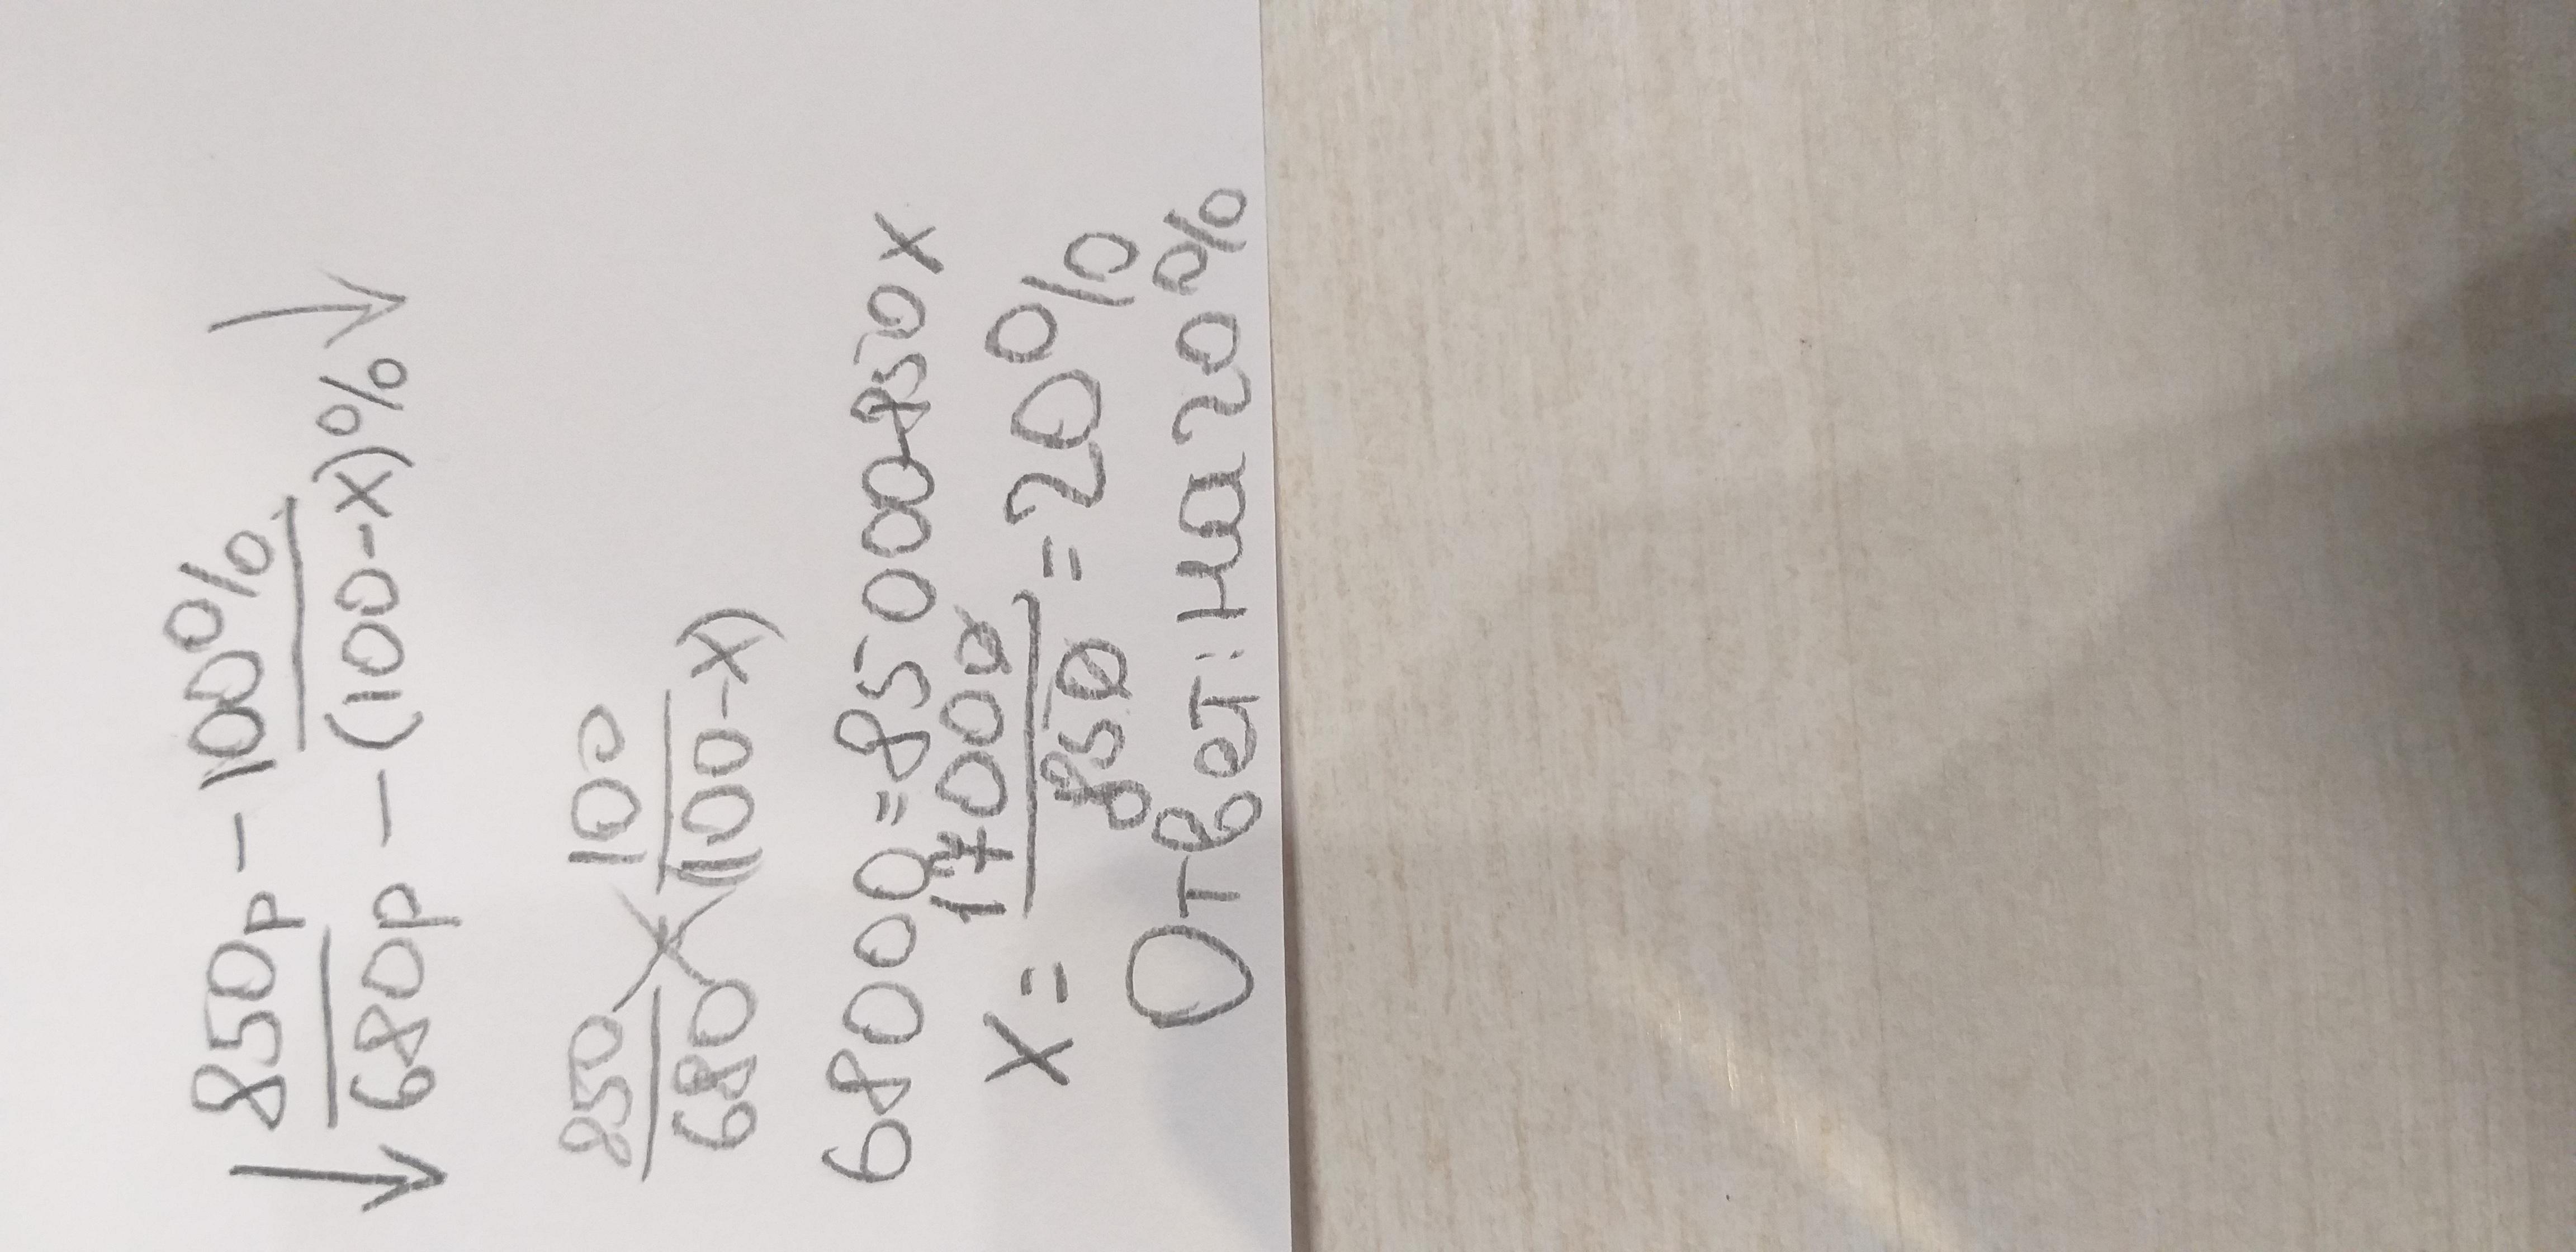 ↓ 850р - 100% ↓
680р - (100-x)%
850 100
680 (100-x)
68000=85000-850x
x= 17000 =20%
850
Ответ: на 20%